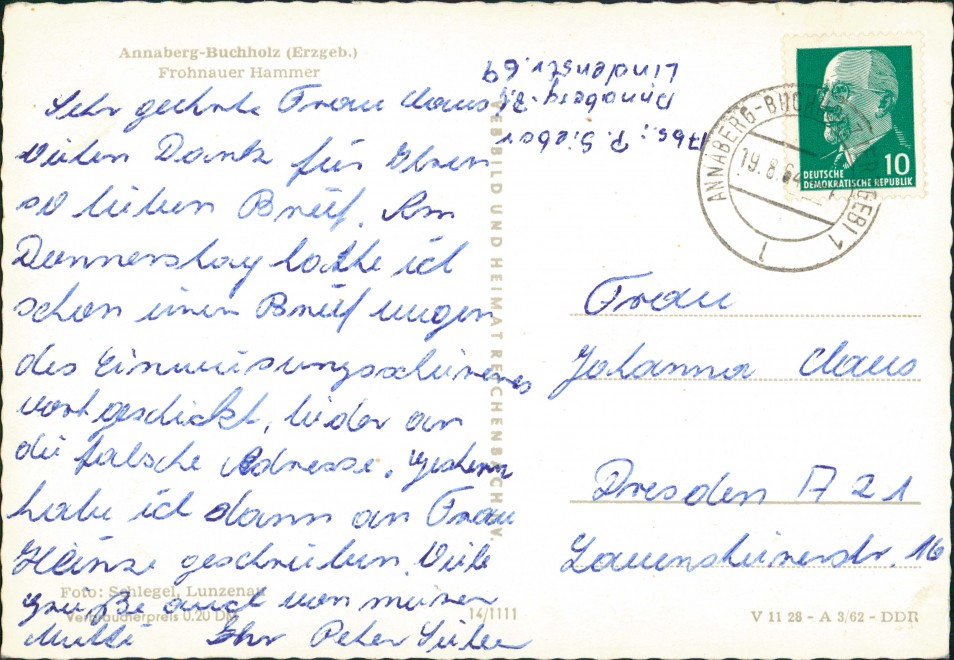 Annaberg-Buchholz (Erzgeb.)
Frohnauer Hammer
Sehr geehrte Frau Claus,
Vielen Dank für Ihren
so lieben Brief. Am
Donnerstag hatte ich
schon einen Brief wegen
des Einweisungsscheines
fortgeschickt, leider an
die falsche Adresse, gestern
habe ich dann an Frau
Heinze geschrieben. Viele
Grüße auch von meiner
Mutti Ihr Peter
Foto: Schlegel, Lunzenau
Verbraucherpreis 0.20 DM
14/1111
BILD UND HEIMAT REICHENBACH I. V.
Abs.: P.
Annaberg-B.
Lindenstr. 69
ANNABERG-BUCHHOLZ (ERZGEB) 1
19.8.64
1
10
DEUTSCHE
DEMOKRATISCHE REPUBLIK
Frau
Johanna Claus
Dresden A 21
Lauensteinerstr. 16
V 11 28 - A 3/62 - DDR